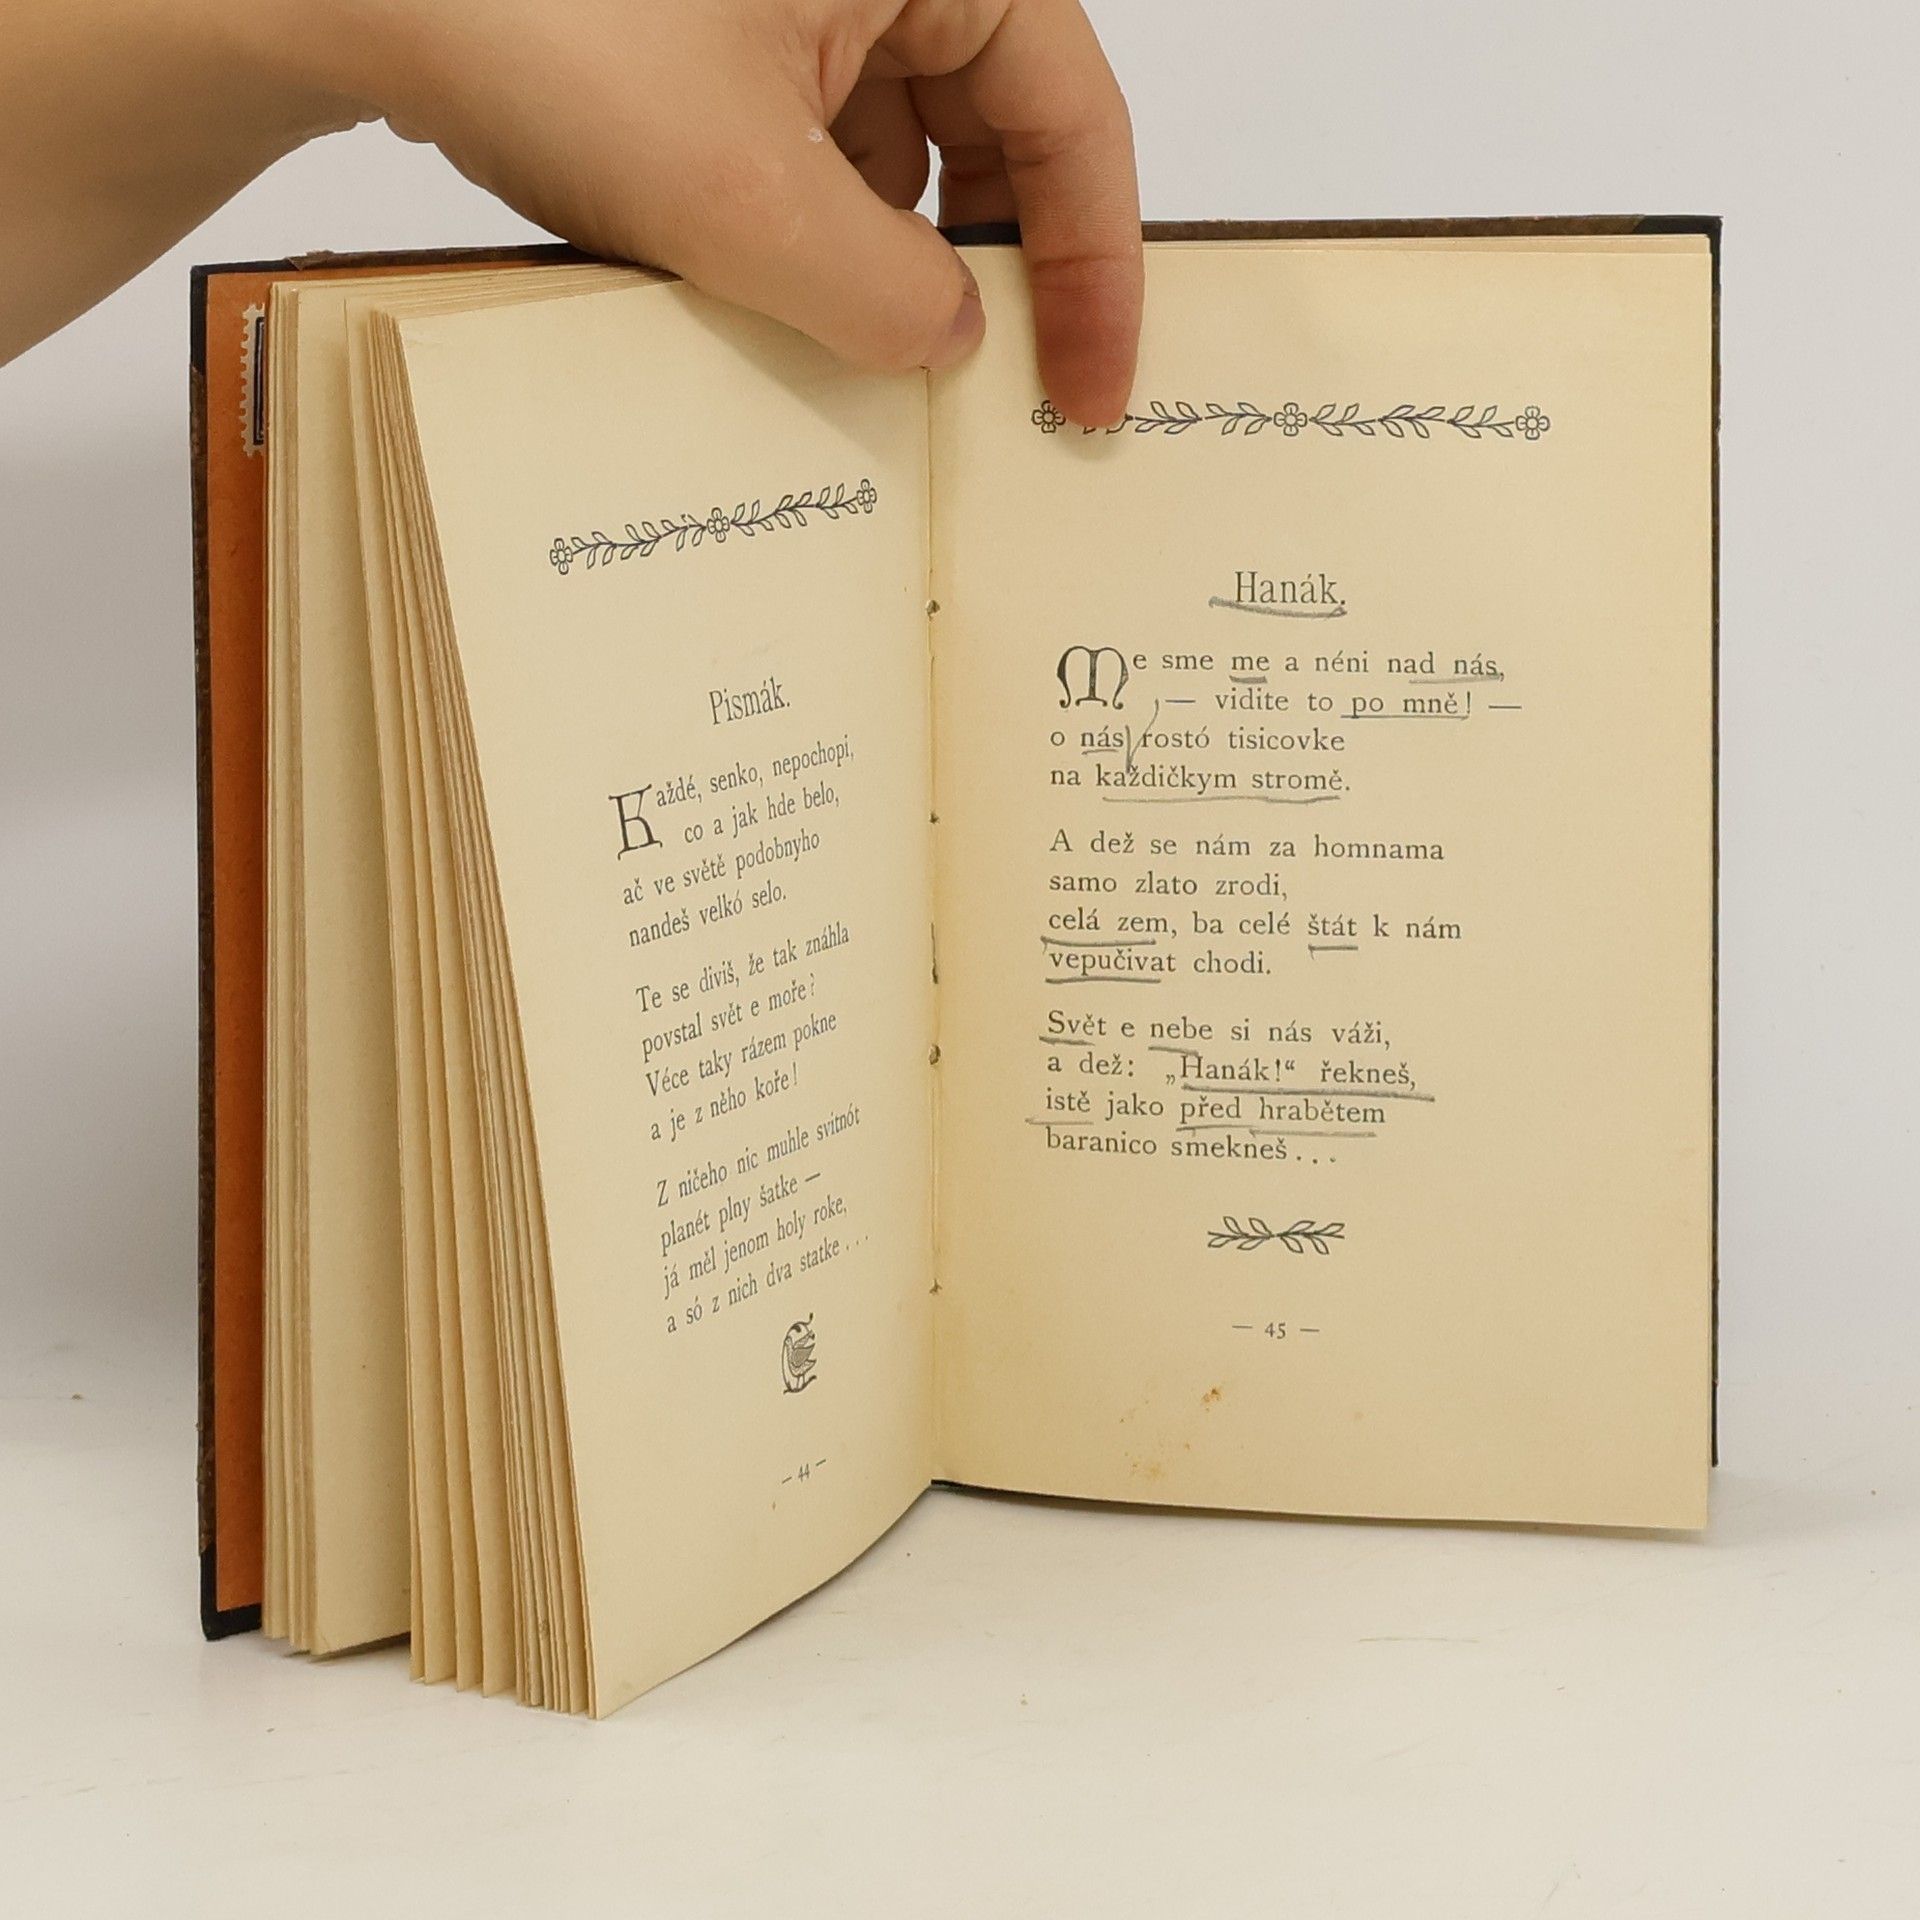 Pismák.
Každé, senko, nepochopi,
co a jak hde belo,
ač ve světě podobnyho
nandeš velkó selo.
Te se diviš, že tak znáhla
povstal svět e moře?
Véce taky rázem pokne
a je z něho koře!
Z ničeho nic muhle svitnót
planét plny šatke —
já měl jenom holy roke,
a só z nich dva statke . . .
— 44 —
Hanák.
Me sme me a néni nad nás,
— vidite to po mně! —
o nás rostó tisicovke
na každičkym stromě.
A dež se nám za homnama
samo zlato zrodi,
celá zem, ba celé štát k nám
vepučivat chodi.
Svět e nebe si nás váži,
a dež: „Hanák!“ řekneš,
istě jako před hrabětem
baranico smekneš . . .
— 45 —